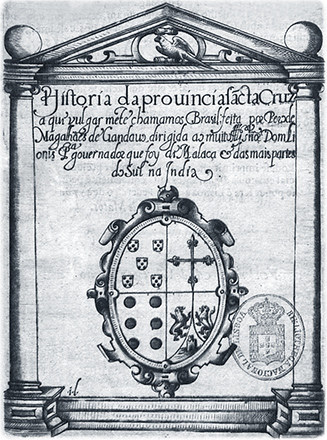 Historia da prouincia sãcta Cruz
a que vulgar mẽte chamamos Brasil: feita por Pero de
Magalhães de Gandauo, dirigida ao muito Ills sñor Dom Li
onis Pª gouernador que foy de Malaca & das mais partes
do Sul na India
NACIONAL DE LISBOA